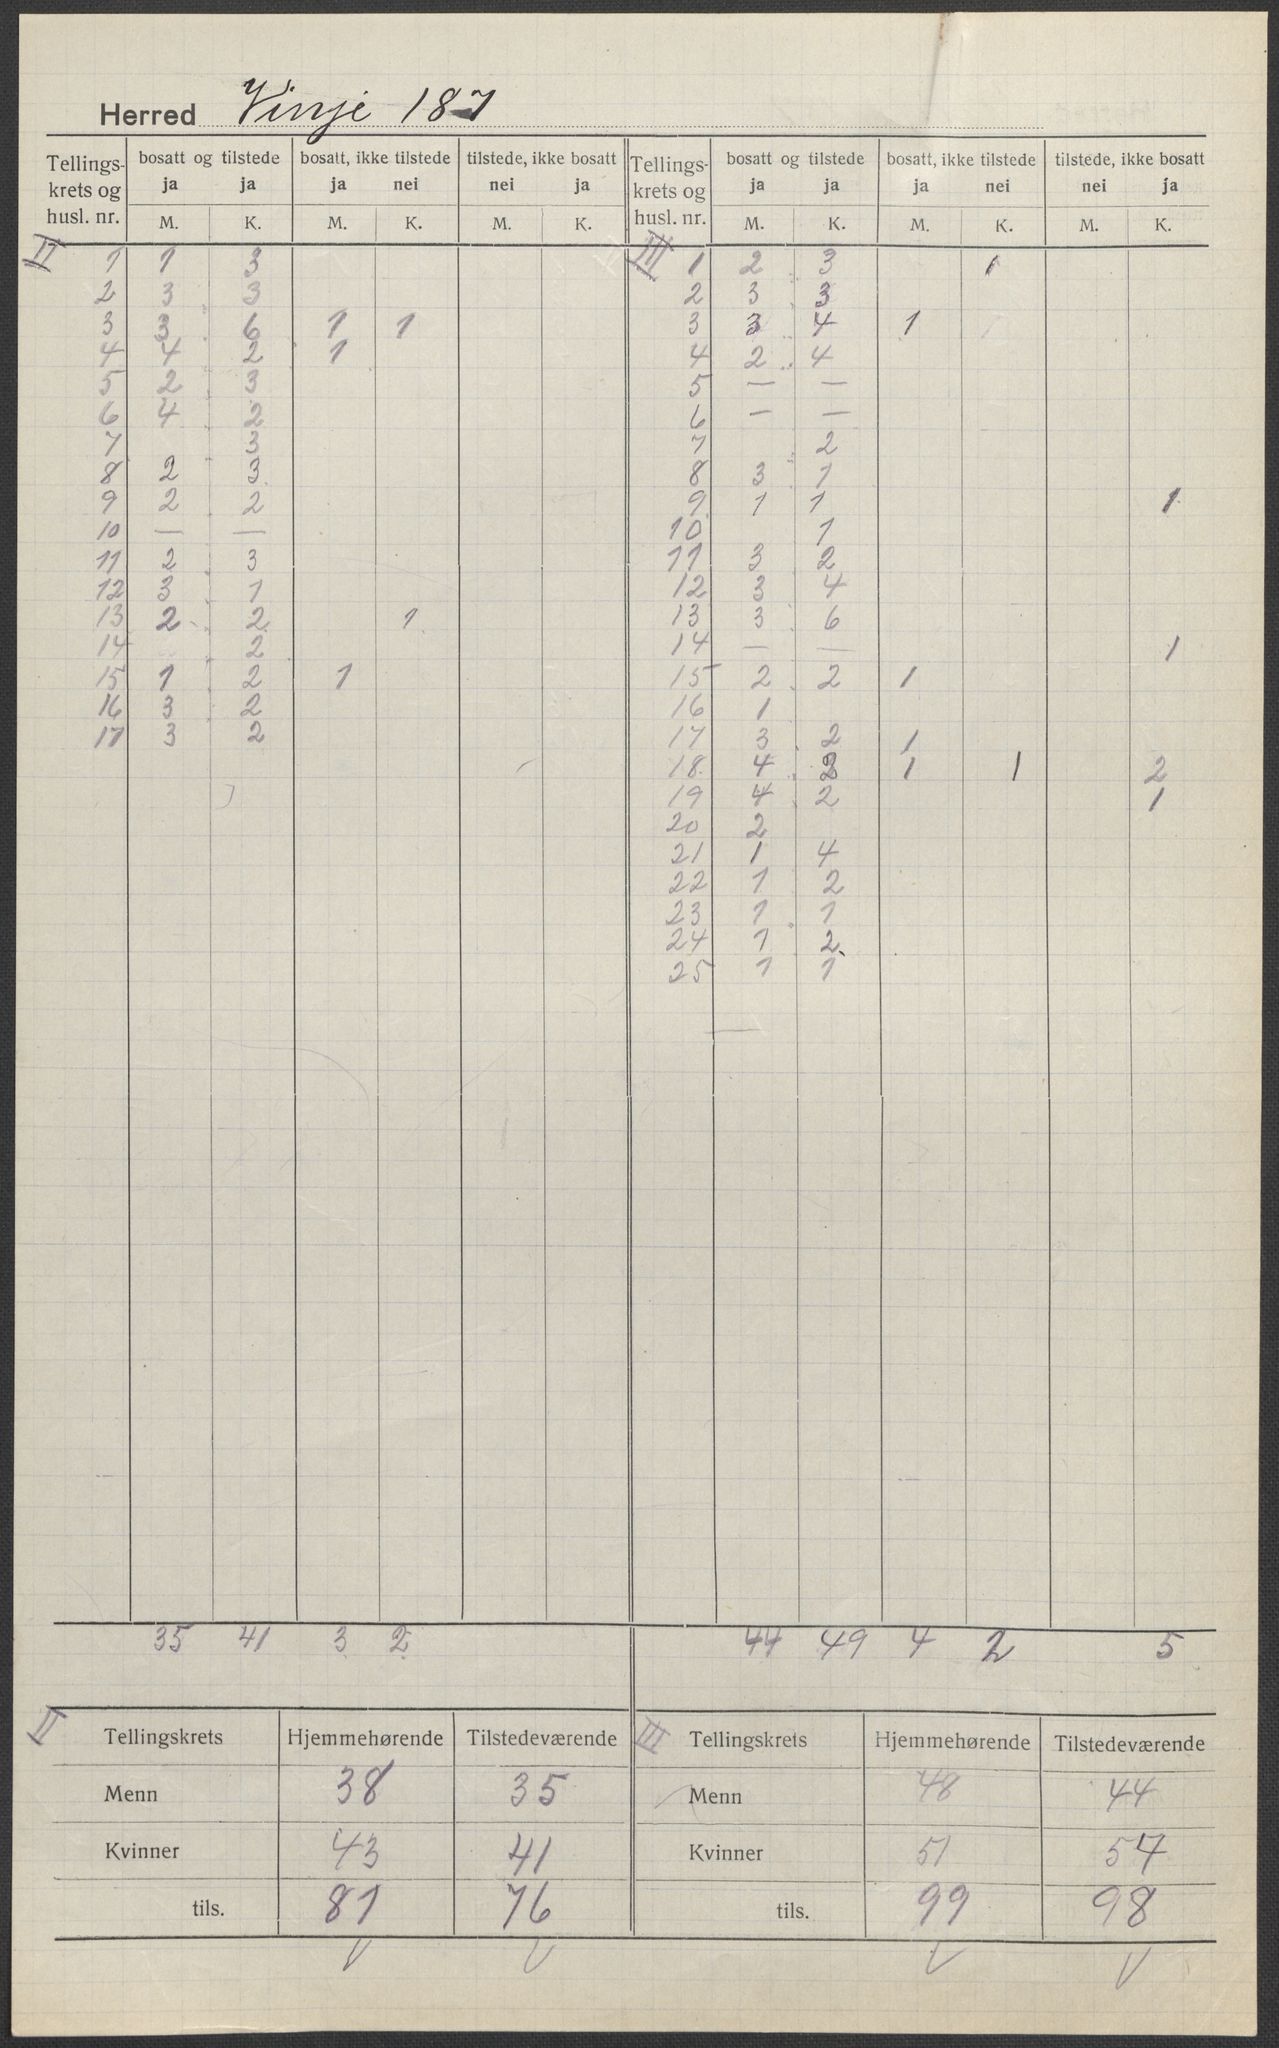 Herred Vinje 187
Tellings- krets og husl. nr. | bosatt og tilstede ja ja M. K. | bosatt, ikke tilstede ja nei M. K. | tilstede, ikke bosatt nei ja M. K. | Tellings- krets og husl. nr. | bosatt og tilstede ja ja M. K. | bosatt, ikke tilstede ja nei M. K. | tilstede, ikke bosatt nei ja M. K.
II 1 | 1 | 3 | | | | | III 1 | 2 | 3 | | 1 | |
2 | 3 | 3 | | | | | 2 | 3 | 3 | | | |
3 | 3 | 6 | 1 | 1 | | | 3 | 3 | 4 | 1 | | |
4 | 4 | 2 | 1 | | | | 4 | 2 | 4 | | | |
5 | 2 | 3 | | | | | 5 | — | — | | | |
6 | 4 | 2 | | | | | 6 | — | — | | | |
7 | | 3 | | | | | 7 | | 2 | | | |
8 | 2 | 3 | | | | | 8 | 3 | 1 | | | |
9 | 2 | 2 | | | | | 9 | 1 | 1 | | | | 1
10 | — | — | | | | | 10 | | 1 | | | |
11 | 2 | 3 | | | | | 11 | 3 | 2 | | | |
12 | 3 | 1 | | | | | 12 | 3 | 4 | | | |
13 | 2 | 2 | | 1 | | | 13 | 3 | 6 | | | |
14 | | 2 | | | | | 14 | — | — | | | | 1
15 | 1 | 2 | 1 | | | | 15 | 2 | 2 | 1 | | |
16 | 3 | 2 | | | | | 16 | 1 | | | | |
17 | 3 | 2 | | | | | 17 | 3 | 2 | 1 | | |
18 | 4 | 2 | 1 | 1 | | 2
19 | 4 | 2 | | | | 1
20 | 2 | | | | |
21 | 1 | 4 | | | |
22 | 1 | 2 | | | |
23 | 1 | 1 | | | |
24 | 1 | 2 | | | |
25 | 1 | 1 | | | |
35 | 41 | 3 | 2 | | | | 44 | 49 | 4 | 2 | | 5
II Tellingskrets | Hjemmehørende | Tilstedeværende | III Tellingskrets | Hjemmehørende | Tilstedeværende
Menn | 38 | 35 | Menn | 48 | 44
Kvinner | 43 | 41 | Kvinner | 51 | 54
tils. | 81 | 76 | tils. | 99 | 98